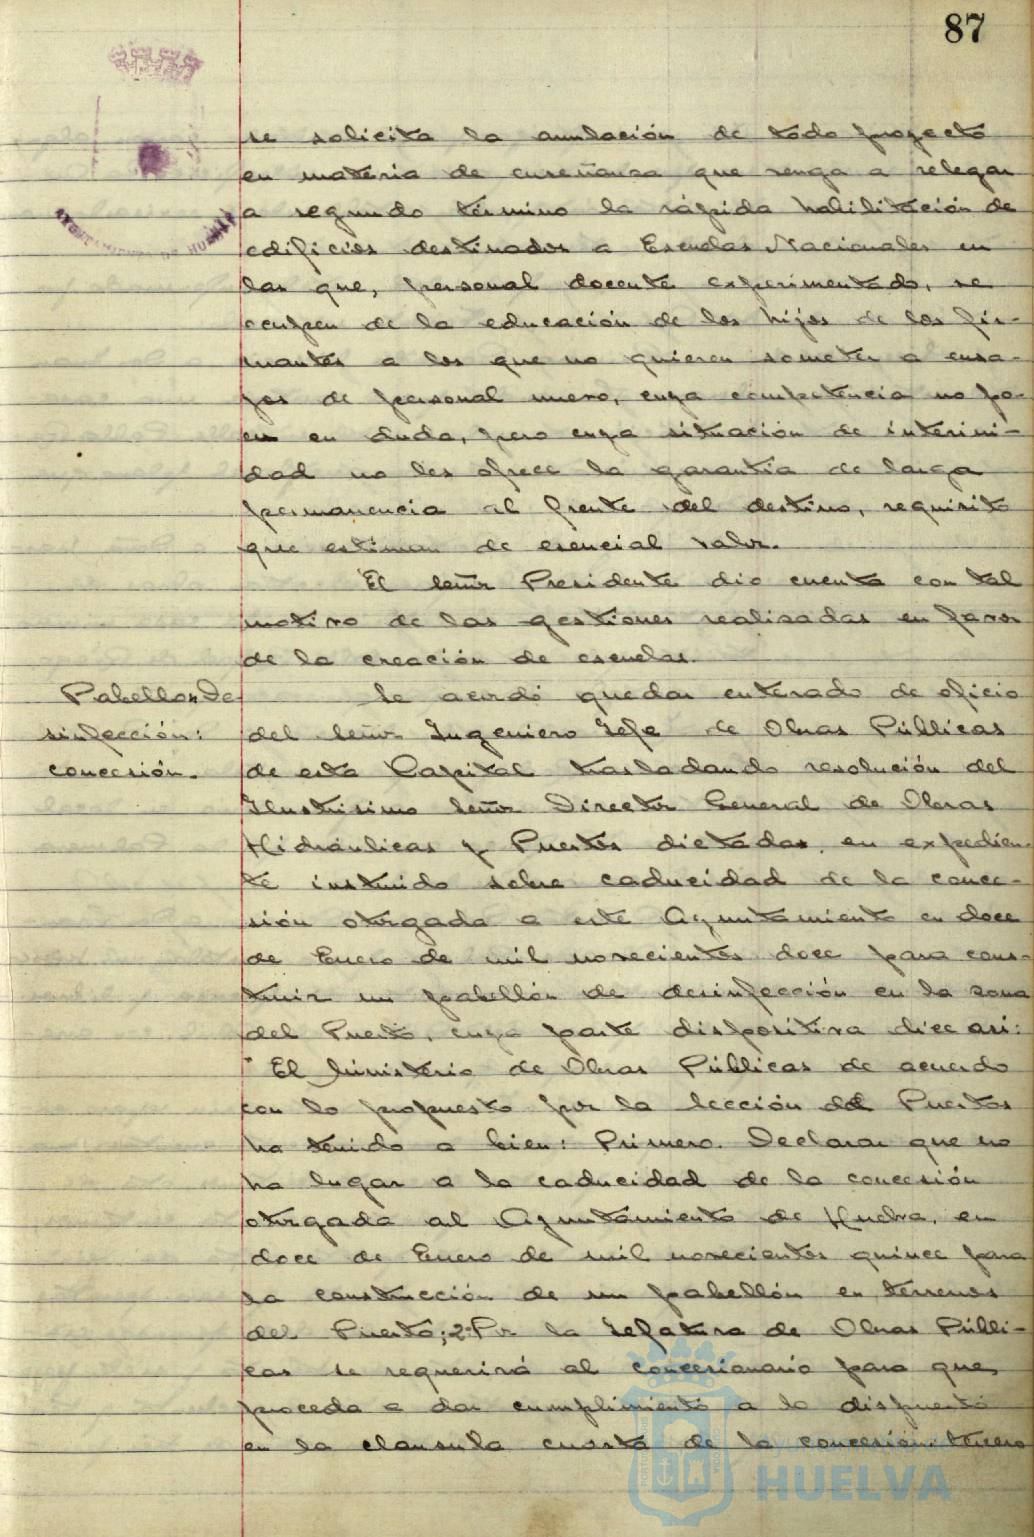 87
se solicita la anulación de todo proyecto
en materia de enseñanza que venga a relegar
a segundo término la rápida habilitación de
AYUNTAMIENTO DE HUELVA
edificios destinados a Escuelas Nacionales en
las que, personal docente experimentado, se
ocupen de la educación de los hijos de los fir-
mantes a los que no quieren someter a ensa-
yos de personal nuevo, cuya competencia no po-
en en duda, pero cuya situación de interini-
dad no les ofrece la garantía de larga
permanencia al frente del destino, requisito
que estiman de esencial valor.
El señor Presidente dio cuenta con tal
motivo de las gestiones realizadas en favor
de la creación de escuelas.
Pabellon De
sinfección:
concesión.
Se acordó quedar enterado de oficio
del señor Ingeniero Jefe de Obras Públicas
de esta Capital trasladando resolución del
Ilustrisimo señor Director General de Obras
Hidráulicas y Puertos dictadas, en expedien-
te instruido sobre caducidad de la conce-
sión otorgada a este Ayuntamiento en doce
de Enero de mil novecientos doce para cons-
truir un pabellón de desinfección en la zona
del Puerto, cuya parte dispositiva dice asi:
"El Ministerio de Obras Públicas de acuerdo
con lo propuesto por la Sección de Puertos
ha tenido a bien: Primero. Declarar que no
ha lugar a la caducidad de la concesión
otorgada al Ayuntamiento de Huelva, en
doce de Enero de mil novecientos quince para
la construcción de un pabellón en terrenos
del Puerto; 2º Por la Jefatura de Obras Públi-
cas se requerirá al concesionario para que,
proceda a dar cumplimiento a lo dispuesto
en la clausula cuarta de la concesión. tercero
HUELVA